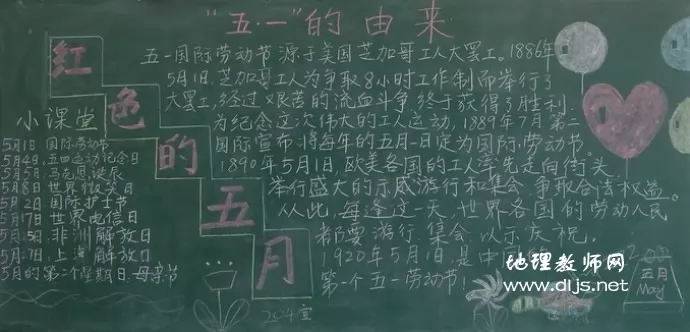 “五·一”的由来
五一国际劳动节源于美国芝加哥工人大罢工。1886年
5月1日,芝加哥工人为争取8小时工作制而举行了
大罢工,经过艰苦的流血斗争,终于获得了胜利.
为纪念这次伟大的工人运动,1889年7月第二
国际宣布:将每年的五月一日定为国际劳动节.
1890年5月1日,欧美各国的工人率先走向街头,
举行盛大的示威游行和集会,争取合法权益。
从此,每逢这一天,世界各国的劳动人民
都要游行、集会,以示庆祝.
1920年5月1日,是中
第一个五一劳动节!
红色的五月
小课堂
5月1日 国际劳动节
5月4日,五四运动纪念日
5月5日,马克思诞辰
5月8日世界微笑日
5月2日国际护士节
5月7日世界电信日
5月5日:非洲解放日
5月7日:上海解放日
5月的第二个星期日:母亲节
五月
May
地理教师网
www.dljs.net